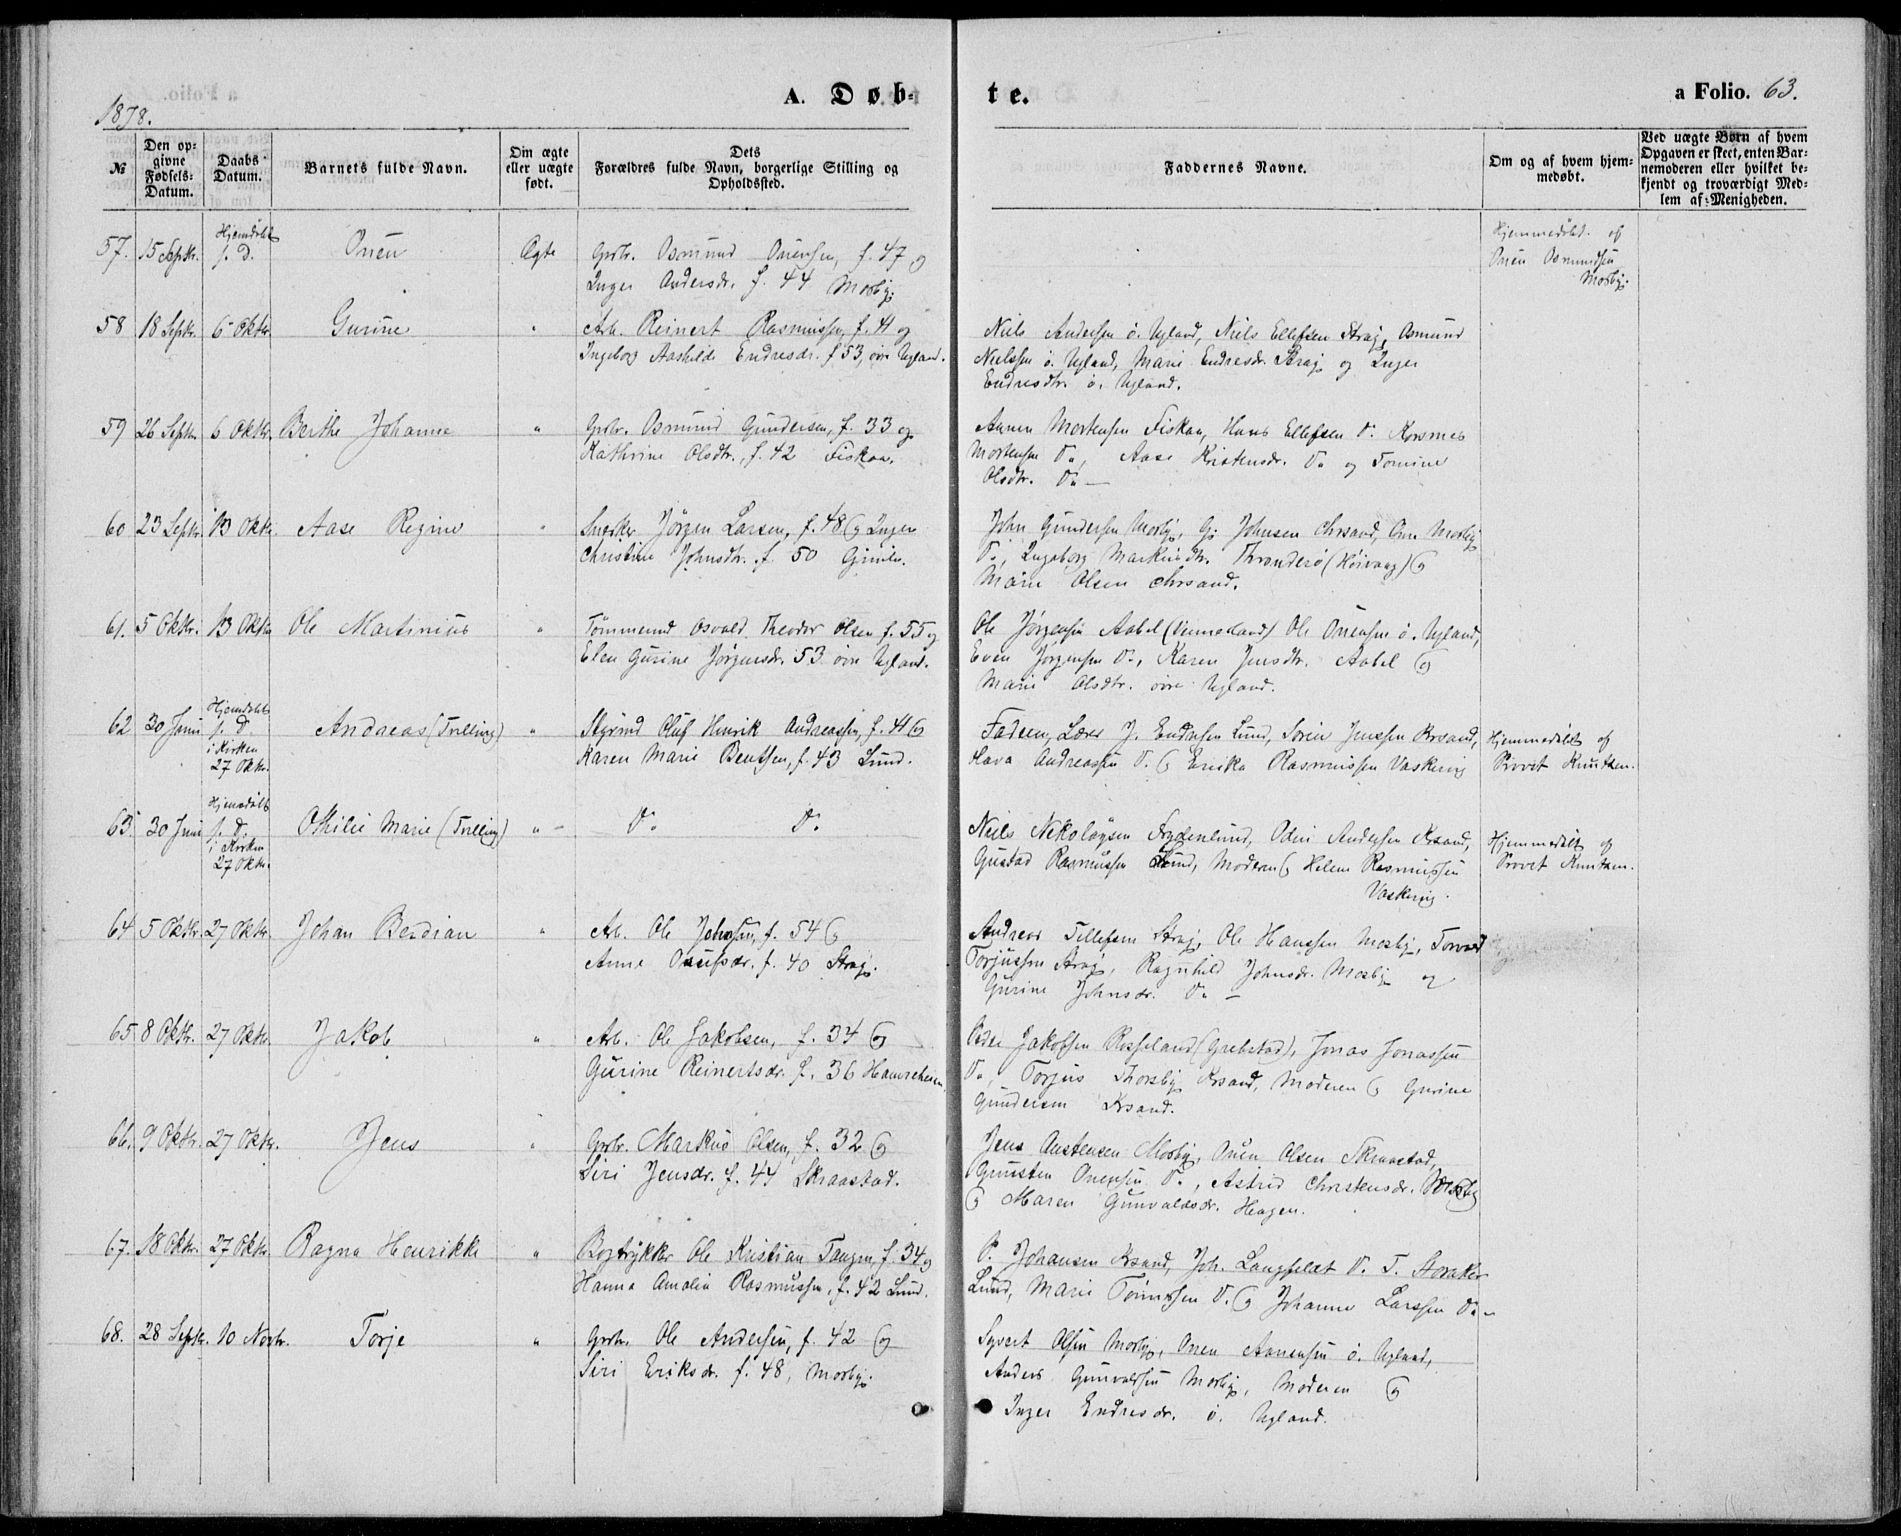 1878.
A. Døb-
te.
a Folio. 63.
№
Den op-
givne
Fødsels-
Datum.
Daabs
Datum.
Barnets fulde Navn.
Om ægte
eller uægte
født.
Dets
Forældres fulde Navn, borgerlige Stilling og
Opholdssted.
Faddernes Navne.
Om og af hvem hjem-
medøbt.
Ved uægte Børn af hvem
Opgaven er skeet, enten Bar-
nemoderen eller hvilket be-
kjendt og troværdigt Med-
lem af Menigheden.
57. 15 Septr. Hjemdøbt s. D. Onen Ægte Grbr. Osmund Onensen, f. 47 og
Inger Andersdr. f. 44 Mosby.
Hjemmedøbt af
Onen Osmundsen
Mosby.
58 18 Septr. 6 Oktbr. Gurine " Arb. Reinert Rasmussen, f. 41 og
Ingeborg Aashilde Endresdr. f 53, øvre Ugland.
Niels Andersen ö. Ugland, Niels Ellefsen Strag, Osmund
Nielssen ö. Ugland, Marie Endresdr. Strag og Inger
Endresdtr. ö. Ugland.
59 26 Septr. 6 Oktbr. Berthe Johanne " Grbr. Osmund Gundersen, f. 33 og
Kathrine Olsdtr., f. 42 Fiskaa.
Aanen Mortensen Fiskaa, Hans Ellefsen D. Korsmes
Mortensen Do, Aase Kristensdr. Do og Tomine
Olsdtr. Do —
60 23 Septr. 13 Oktbr. Aase Regine " Snedker Jørgen Larsen, f. 48 og Inger
Christine Johnsdtr. f. 50 Gimle.
John Gundersen Mosby, G. Johnsen Chrsand, Ane Mosby
D., Ingeborg Markusdtr. Thronderø (Høivaag) og
Marie Olsen Chrsand.
61. 5 Oktbr. 13 Oktbr Ole Martinius " Tømmermd Osvald Theodor Olsen f. 55 og
Elen Gurine Jørgensdr. 53 øvre Ugland.
Ole Jørgensen Aabel (Vennesland) Ole Onensen ö. Ugland,
Even Jørgensen Do, Karen Jensdtr. Aabel og
Marie Olsdtr. øvre Ugland.
62 30 Juni Hjemdøbt s. D. i Kirken 27 Oktbr. Andreas (Tvilling) " Styrmd Oluf Henrik Andreassen, f. 41 og
Karen Marie Bentsen, f. 43 Lund.
Faderen, Lærer J. Endresen Lund, Søren Jenssen Krsand,
Hava Andreassen D. og Enrika Rasmussen Vaskerig
Hjemmedøbt af
Provst Knutzen.
63. 30 Juni Hjemdøbt s. D. i Kirken 27 Oktbr. Othilie Marie (Tvilling) " — Do Do
Niels Nikolaysen Frydenlund, Odin Andersen Krsand,
Gustad Rasmussen Lund, Moderen og Helene Rasmussen
Vaskerig.
Hjemmedøbt af
Provst Knutzen.
64 5 Oktbr. 27 Oktbr. Johan Berdian " Arb. Ole Johnsen, f. 54 og
Anne Onensdr. f. 40 Strag.
Andreas Tellefsen Strag, Ole Hanssen Mosby, Torvald
Torjussen Strag, Ragnhild Johnsdr. Mosby og
Gurine Johnsdr. Do —
65 8 Oktbr. 27 Oktbr. Jakob " Arb. Ole Jakobsen, f. 34 og
Gurine Reinertsdr. f. 36 Hamreheien
Peder Jakobsen Rosseland (Grebstad), Jonas Jonassen
Do, Torjus Thorsby Krsand, Moderen og Gurine
Gundersen Krsand.
66. 9 Oktbr. 27 Oktbr. Jens " Grbr. Markus Olsen, f. 32 og
Siri Jensdr. f. 44 Skraastad.
Jens Austensen Mosby, Onen Olsen Skraastad,
Gunsten Onensen Do, Astrid Christensdr. Mosby
og Maren Gunvaldsdr. Haagen.
67. 18 Oktbr. 27 Oktbr. Ragna Henrikke " Bogtrykker Ole Kristian Tangen, f. 34 og
Hanna Amalia Rasmussen, f. 42 Lund.
P. Johansen Krsand, Joh. Langfeldt D. T. Storaker
Lund, Marie Tønnesen D. og Johanne Larssen Do —
68. 28 Septr. 10 Novbr. Torje " Grbr. Ole Andersen, f. 42 og
Siri Eriksdr. f. 48, Mosby.
Syvert Olsen Mosby, Onen Aanensen ö. Ugland,
Anders Gunvaldsen Mosby, Moderen og
Inger Endresdr. ö. Ugland.